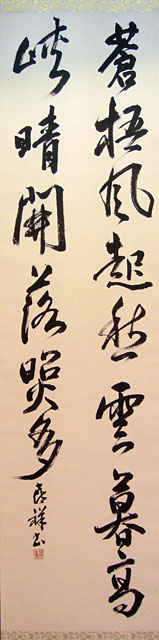 蒼梧風起愁雲暮高
峡晴開落照多
祥書